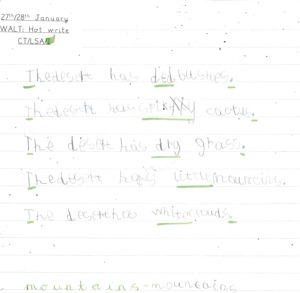 27th/28th January
WALT: Hot write
CT/LSA/
The desert has dedbushes.
The desert has cactus.
The desert has dry grass.
The desert has
The desert has whiteclouds.
mountains - mountains